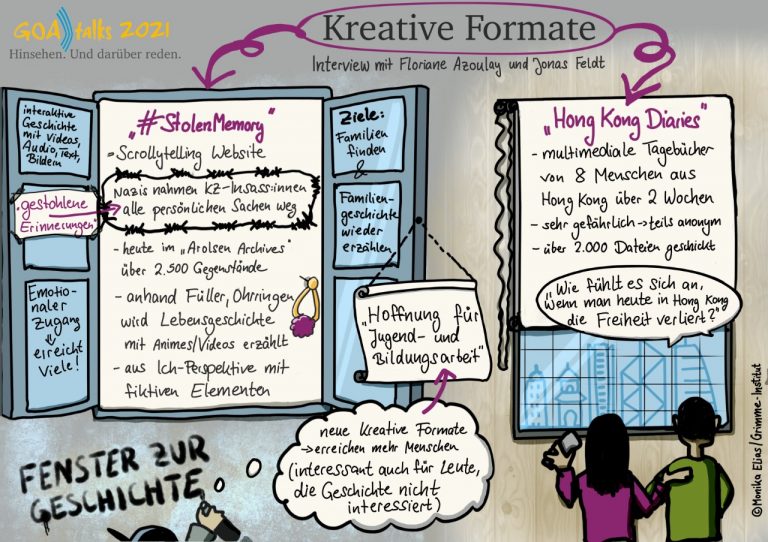 GOA talks 2021
Hinsehen. Und darüber reden.
Kreative Formate
Interview mit Floriane Azoulay und Jonas Feldt
interaktive
Geschichte
mit Videos,
Audio, Text,
Bildern
"gestohlene
Erinnerungen"
Emotio-
naler
Zugang
erreicht
Viele!
"#StolenMemory"
- Scrollytelling Website
Nazis nahmen KZ-Insass:innen
alle persönlichen Sachen weg
- heute im "Arolsen Archives"
über 2.500 Gegenstände
- anhand Füller, Ohrringen
wird Lebensgeschichte
mit Animes/Videos erzählt
- aus Ich-Perspektive mit
fiktiven Elementen
Ziele:
Familien
finden
&
Familien-
geschichte
wieder
erzählen
"Hoffnung für
Jugend- und
Bildungsarbeit"
neue Kreative Formate
→ erreichen mehr Menschen
(interessant auch für Leute,
die Geschichte nicht
interessiert)
FENSTER ZUR
GESCHICHTE
"Hong Kong Diaries"
- multimediale Tagebücher
von 8 Menschen aus
Hong Kong über 2 Wochen
- sehr gefährlich → teils anonym
- über 2.000 Dateien geschickt
"Wie fühlt es sich an,
wenn man heute in Hong Kong
die Freiheit verliert?"
©Monika Elias/Grimme-Institut